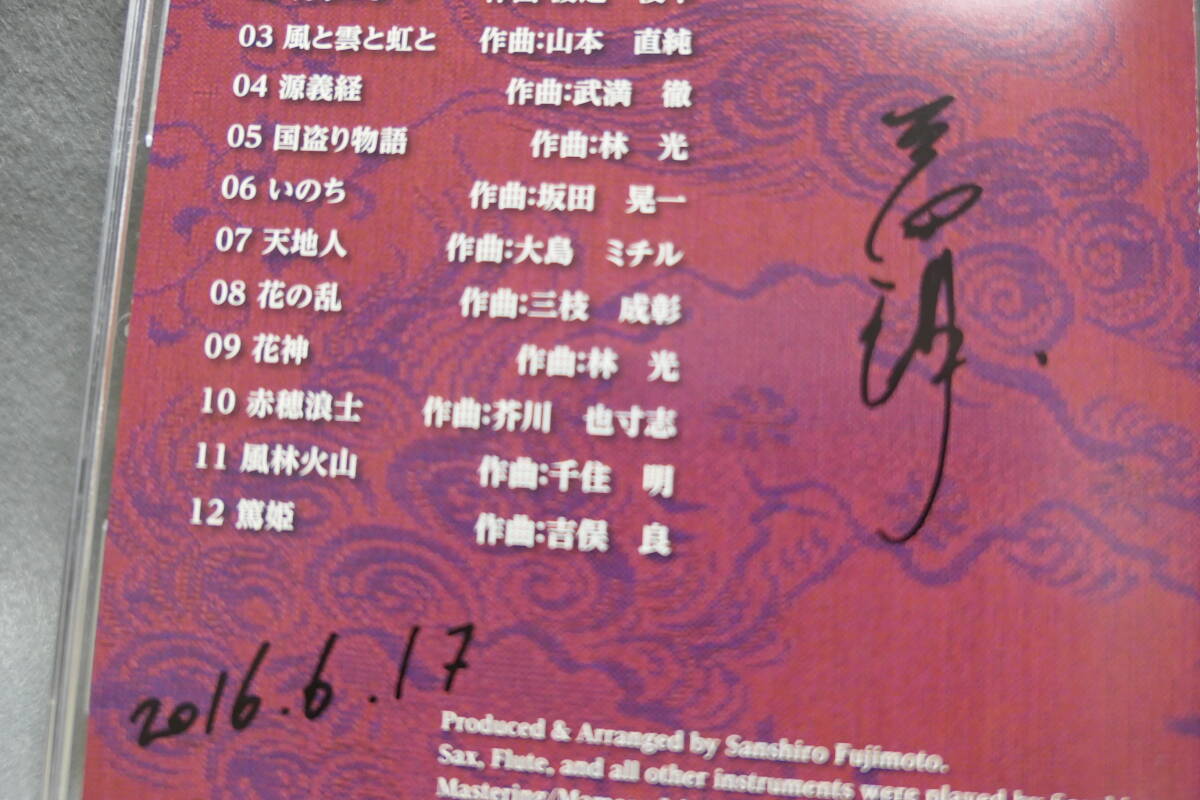 03 風と雲と虹と 作曲:山本 直純
04 源義経 作曲:武満 徹
05 国盗り物語 作曲:林 光
06 いのち 作曲:坂田 晃一
07 天地人 作曲:大島 ミチル
08 花の乱 作曲:三枝 成彰
09 花神 作曲:林 光
10 赤穂浪士 作曲:芥川 也寸志
11 風林火山 作曲:千住 明
12 篤姫 作曲:吉俣 良
2016.6.17
Produced & Arranged by Sanshiro Fujimoto.
Sax, Flute, and all other instruments were played by